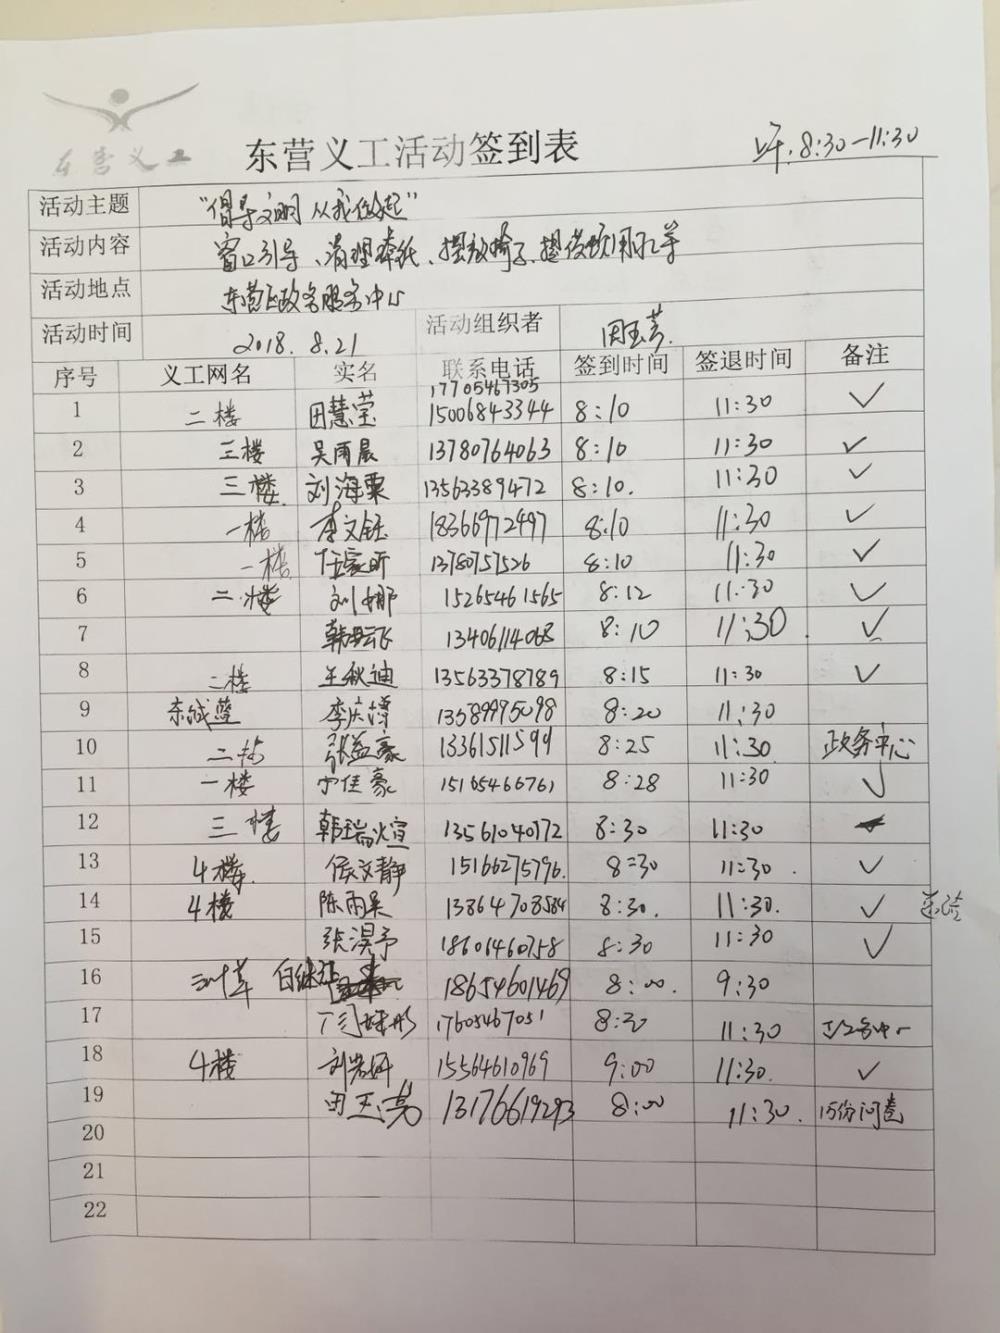 东营义工
东营义工活动签到表
上午: 8:30-11:30
活动主题 "倡导文明 从我做起"
活动内容 窗口引导、清理座椅、摆放椅子、提供
活动地点 东营区政务服务中心
活动时间 2018. 8.21 活动组织者 田玉芳
序号 义工网名 实名 联系电话 签到时间 签退时间 备注
17705467305
1 二楼 田慧莹 15006843344 8:10 11:30 ✓
2 三楼 吴雨晨 13780764063 8:10 11:30 ✓
3 三楼. 刘海粟 13563389472 8:10. 11:30 ✓
4 一楼 李文钰 18366972497 8:10 11:30 ✓
5 一楼 任家昕 13780757526 8:10 11:30 ✓
6 二楼 刘娜 15265461565 8:12 11:30 ✓
7 韩云飞 13406114068 8:10 11:30. ✓
8 二楼 王秋迪 13563378789 8:15 11:30 ✓
9 东城 李庆 13589975098 8:20 11:30
10 二楼 张益豪 13361511599 8:25 11:30 政务中心
11 一楼 宁佳豪 15165466761 8:28 11:30 ✓
12 三楼 韩瑞 13561040772 8:30 11:30
13 4楼. 侯文静 15166275796. 8:30 11:30. ✓
14 4楼 陈雨昊 13864708584 8:30. 11:30. ✓
15 张淏予 18601460758 8:30 11:30 ✓
16 白 18654601469 8:00. 9:30
17 17605467051 8:30 11:30
18 4楼 刘岩妍 15564610969 9:00 11:30. ✓
19 田玉亮 13176619293 8:00 11:30. 15份问卷
20
21
22